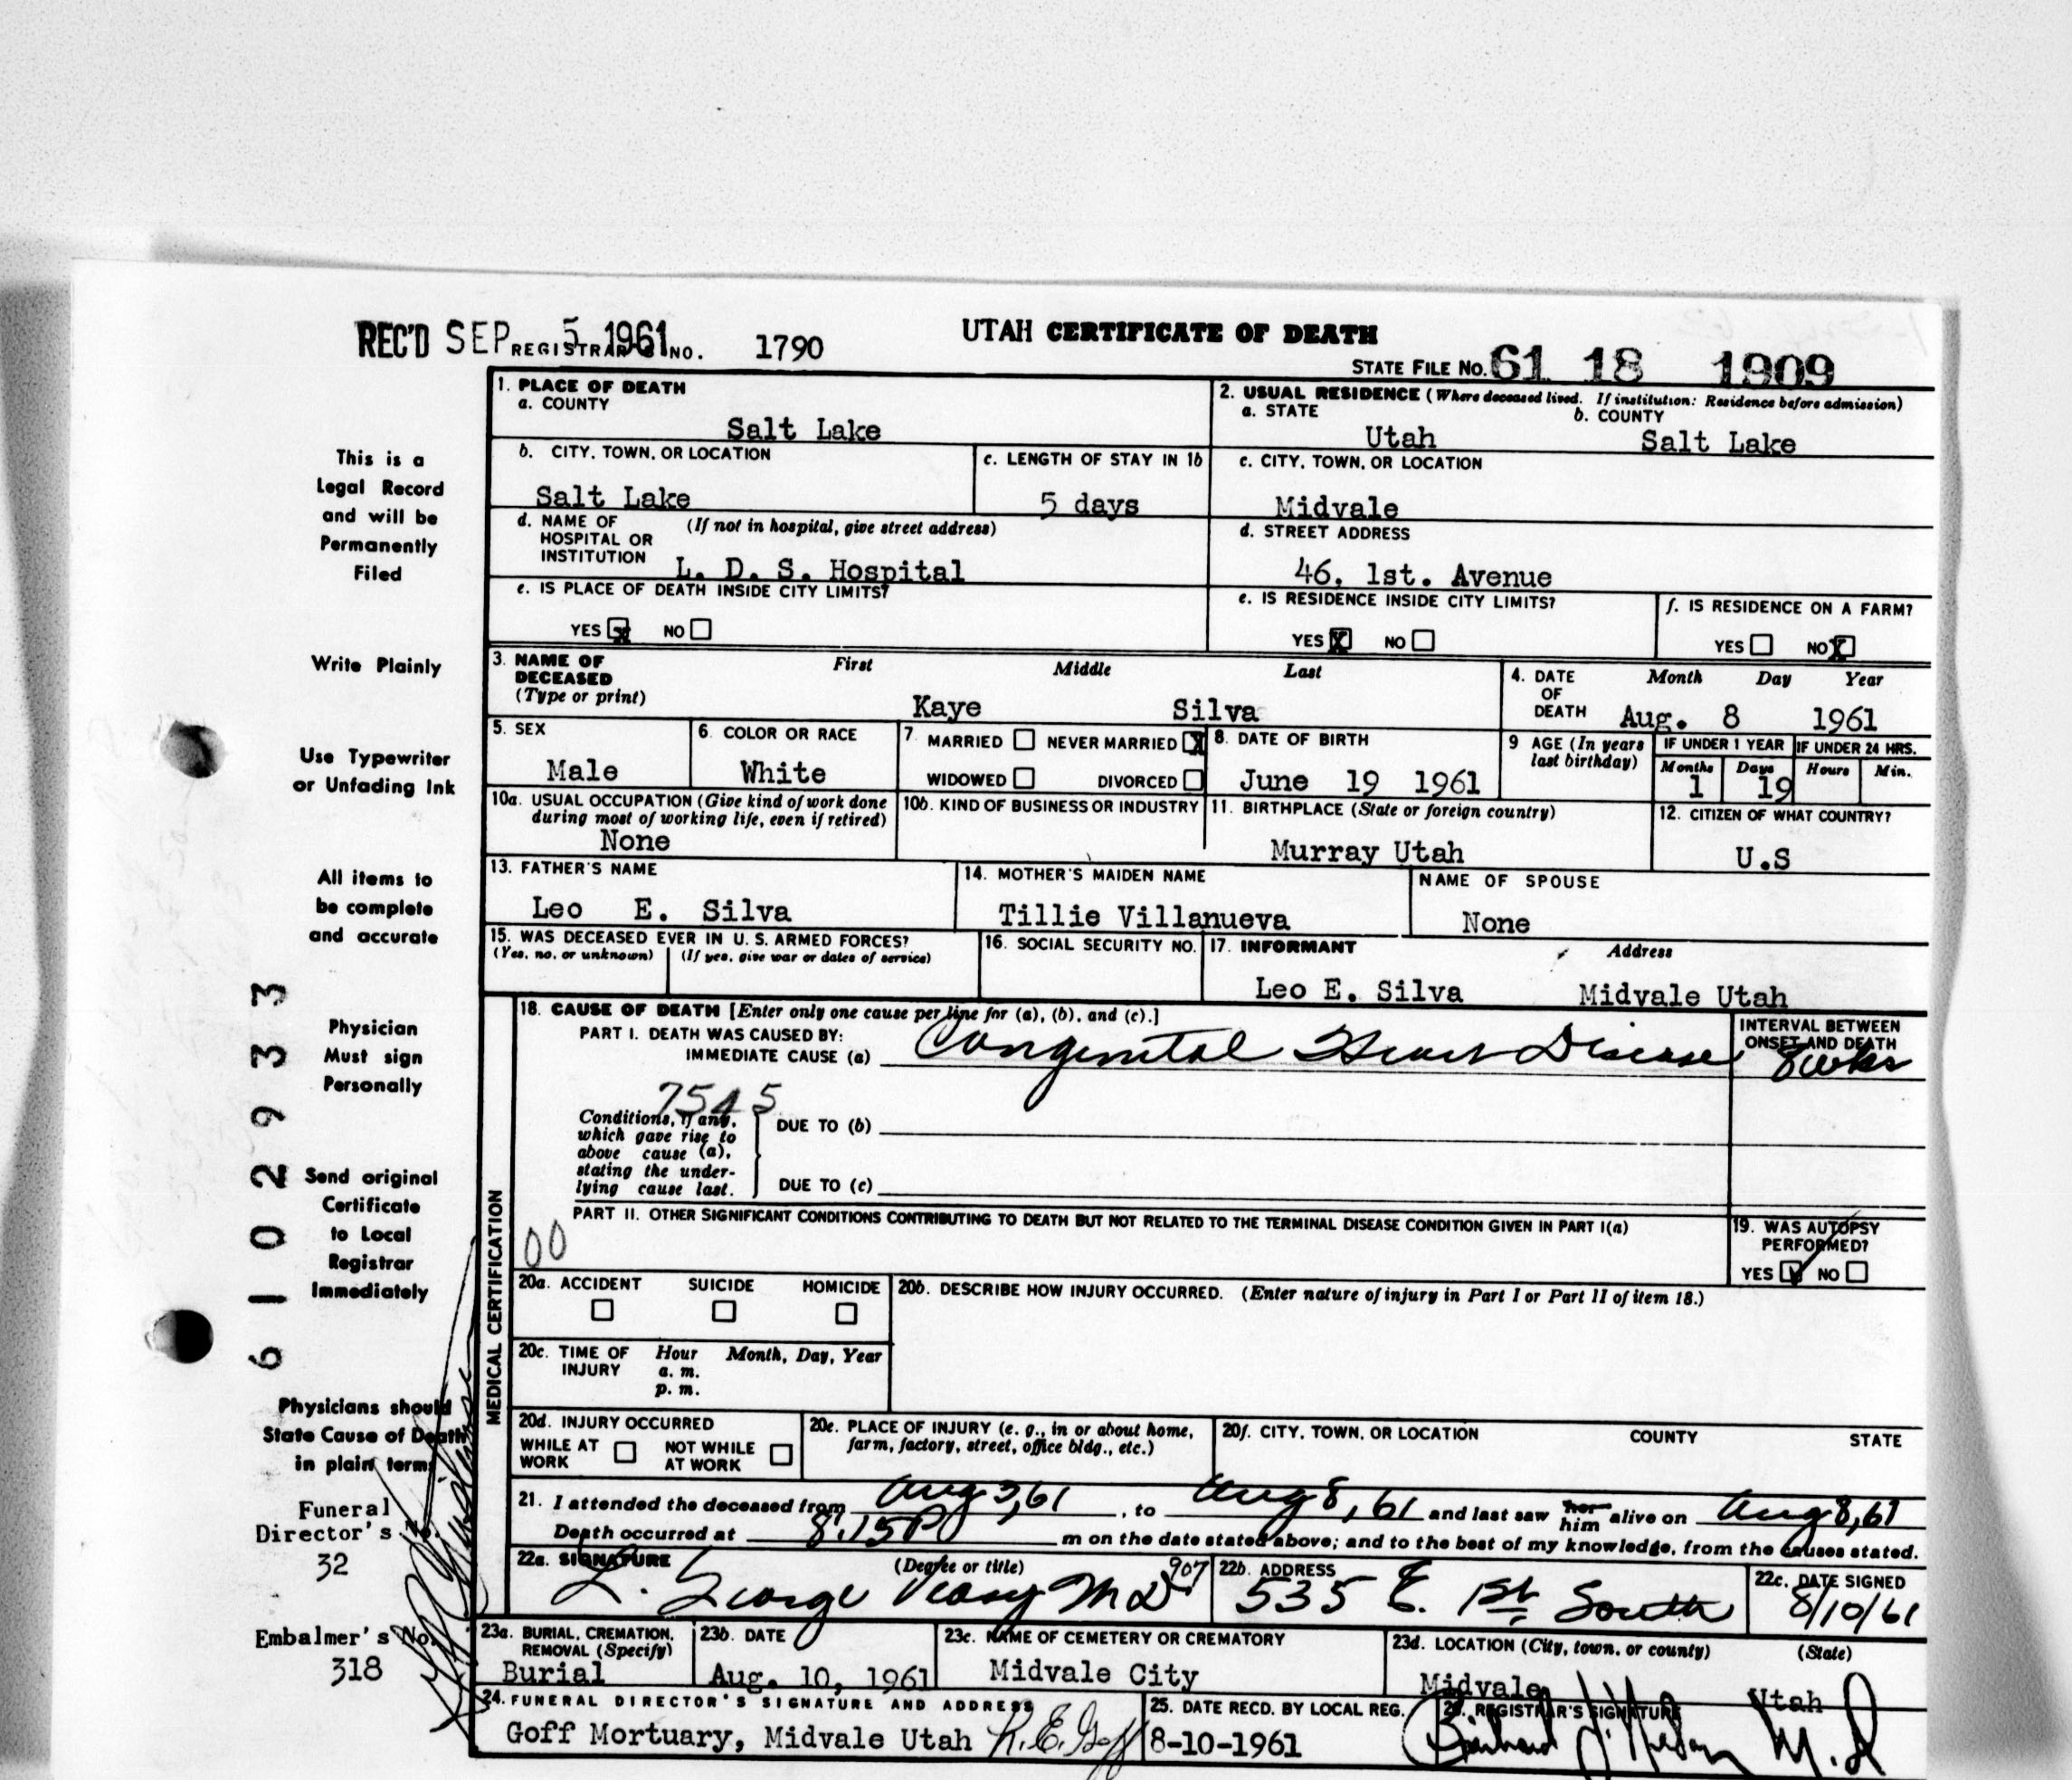 REC'D SEP 5 1961 REGISTRAR'S NO. 1790
UTAH CERTIFICATE OF DEATH
STATE FILE NO. 61 18 1909
1. PLACE OF DEATH
a. COUNTY
Salt Lake
2. USUAL RESIDENCE (Where deceased lived. If institution: Residence before admission)
a. STATE b. COUNTY
Utah Salt Lake
b. CITY, TOWN, OR LOCATION
Salt Lake
c. LENGTH OF STAY IN 1b
5 days
c. CITY, TOWN, OR LOCATION
Midvale
d. NAME OF HOSPITAL OR INSTITUTION (If not in hospital, give street address)
L. D. S. Hospital
d. STREET ADDRESS
46, 1st. Avenue
e. IS PLACE OF DEATH INSIDE CITY LIMITS?
YES X NO
e. IS RESIDENCE INSIDE CITY LIMITS?
YES X NO
f. IS RESIDENCE ON A FARM?
YES NO X
3. NAME OF DECEASED (Type or print)
First Middle Last
Kaye Silva
4. DATE OF DEATH Month Day Year
Aug. 8 1961
5. SEX
Male
6. COLOR OR RACE
White
7. MARRIED NEVER MARRIED X
WIDOWED DIVORCED
8. DATE OF BIRTH
June 19 1961
9 AGE (In years last birthday)
IF UNDER 1 YEAR IF UNDER 24 HRS.
Months Days Hours Min.
1 19
10a. USUAL OCCUPATION (Give kind of work done during most of working life, even if retired)
None
10b. KIND OF BUSINESS OR INDUSTRY
11. BIRTHPLACE (State or foreign country)
Murray Utah
12. CITIZEN OF WHAT COUNTRY?
U.S
13. FATHER'S NAME
Leo E. Silva
14. MOTHER'S MAIDEN NAME
Tillie Villanueva
NAME OF SPOUSE
None
15. WAS DECEASED EVER IN U. S. ARMED FORCES?
(Yes, no, or unknown) (If yes, give war or dates of service)
16. SOCIAL SECURITY NO.
17. INFORMANT Address
Leo E. Silva Midvale Utah
MEDICAL CERTIFICATION
18. CAUSE OF DEATH [Enter only one cause per line for (a), (b), and (c).]
PART I. DEATH WAS CAUSED BY:
IMMEDIATE CAUSE (a) Congenital Heart Disease
INTERVAL BETWEEN ONSET AND DEATH
8 wks
7545
Conditions, if any, which gave rise to above cause (a), stating the underlying cause last.
DUE TO (b)
DUE TO (c)
PART II. OTHER SIGNIFICANT CONDITIONS CONTRIBUTING TO DEATH BUT NOT RELATED TO THE TERMINAL DISEASE CONDITION GIVEN IN PART I(a)
00
19. WAS AUTOPSY PERFORMED?
YES NO
20a. ACCIDENT SUICIDE HOMICIDE
20b. DESCRIBE HOW INJURY OCCURRED. (Enter nature of injury in Part I or Part II of item 18.)
20c. TIME OF INJURY Hour Month, Day, Year
a. m.
p. m.
20d. INJURY OCCURRED
WHILE AT WORK NOT WHILE AT WORK
20e. PLACE OF INJURY (e. g., in or about home, farm, factory, street, office bldg., etc.)
20f. CITY, TOWN, OR LOCATION COUNTY STATE
21. I attended the deceased from Aug 3, 61, to Aug 8, 61 and last saw her him alive on Aug 8, 61
Death occurred at 8:15 P m on the date stated above; and to the best of my knowledge, from the causes stated.
22a. SIGNATURE (Degree or title)
L. George Veasy MD 907
22b. ADDRESS
535 E. 1st South
22c. DATE SIGNED
8/10/61
23a. BURIAL, CREMATION, REMOVAL (Specify)
Burial
23b. DATE
Aug. 10, 1961
23c. NAME OF CEMETERY OR CREMATORY
Midvale City
23d. LOCATION (City, town, or county) (State)
Midvale Utah
24. FUNERAL DIRECTOR'S SIGNATURE AND ADDRESS
Goff Mortuary, Midvale Utah R. E. Goff
25. DATE RECD. BY LOCAL REG.
8-10-1961
26. REGISTRAR'S SIGNATURE
M.D
This is a
Legal Record
and will be
Permanently
Filed
Write Plainly
Use Typewriter
or Unfading Ink
All items to
be complete
and accurate
Physician
Must sign
Personally
Send original
Certificate
to Local
Registrar
Immediately
Physicians should
State Cause of Death
in plain terms
Funeral
Director's No.
32
Embalmer's No.
318
61 02933